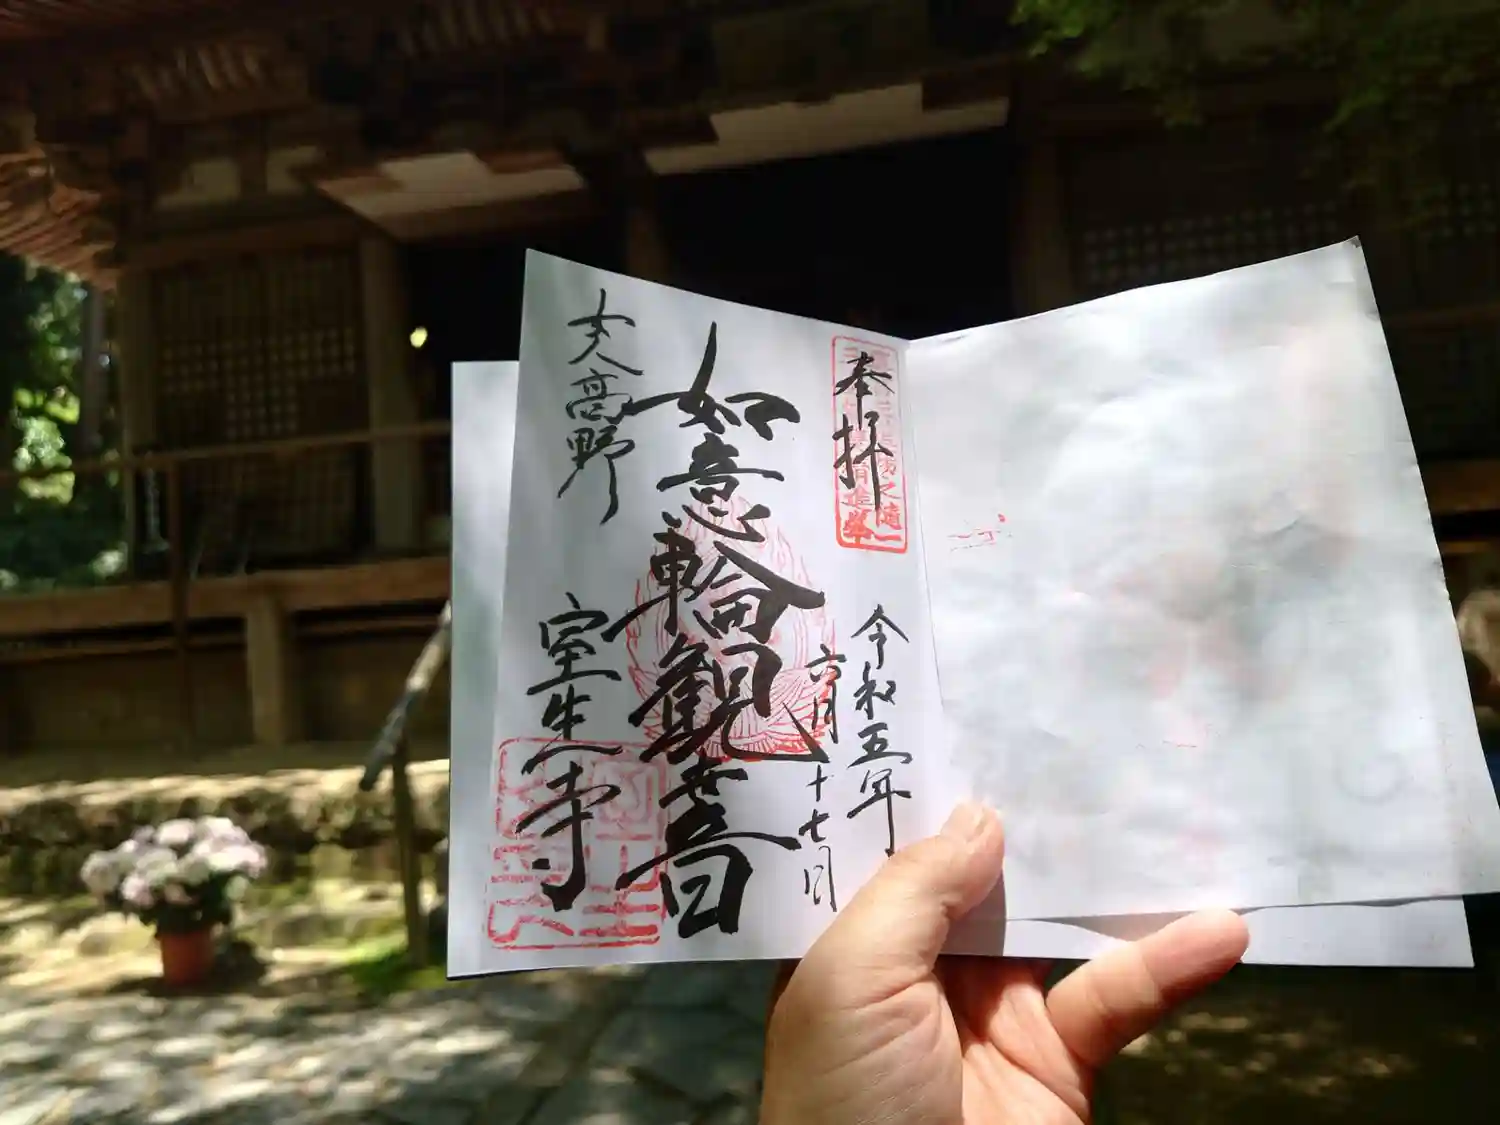 奉拝
令和五年
六月十七日
如意輪観世音
女人高野
室生寺